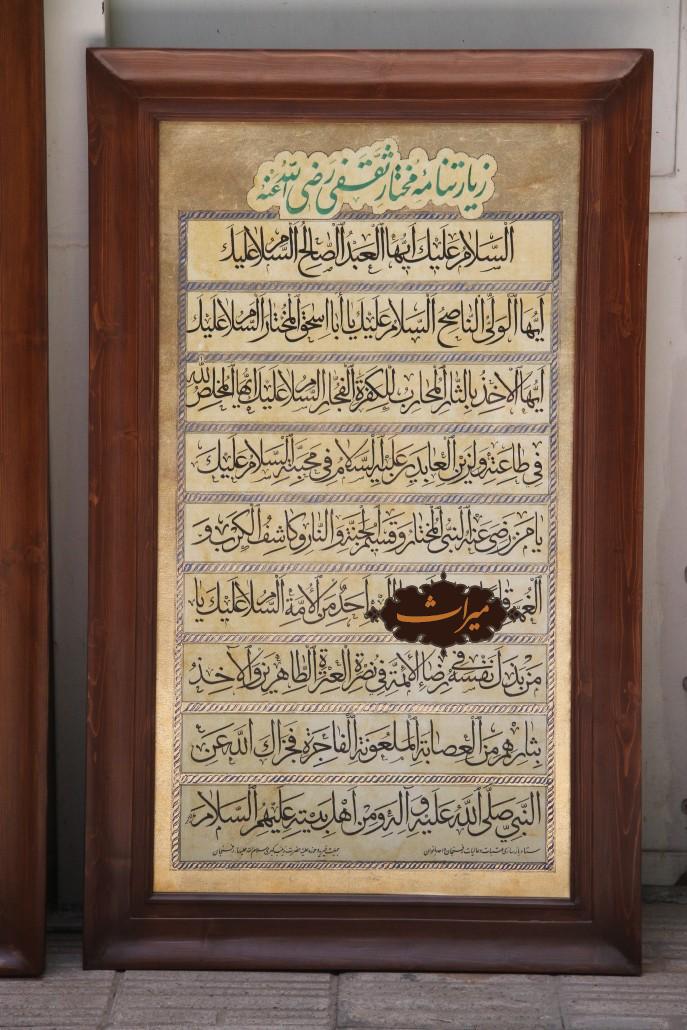 زیارتنامهٔ مختار ثقفی رضی الله عنه
اَلسَّلامُ عَلَیْكَ اَیُّهَا الْعَبْدُ الصّالِحُ اَلسَّلامُ عَلَیْكَ
اَیُّهَا الْوَلِیُّ النّاصِحُ اَلسَّلامُ عَلَیْكَ یا اَبا اِسْحقَ الْمُخْتارُ اَلسَّلامُ عَلَیْكَ
اَیُّهَا الْآخِذُ بِالثّارِ الْمُحارِبُ لِلْكَفَرَةِ الْفُجّارِ اَلسَّلامُ عَلَیْكَ اَیُّهَا الْمُخْلِصُ لِلّهِ
فی طاعَتِهِ وَلِزَیْنِ الْعابِدینَ عَلَیْهِ السَّلامُ فی مَحَبَّتِهِ اَلسَّلامُ عَلَیْكَ
یا مَنْ رَضِیَ عَنْهُ النَّبِیُّ الْمُخْتارُ وَ قَسیمُ الْجَنَّةِ وَالنّارِ وَ كاشِفُ الْكَرْبِ وَ
الْغُمَّةِ اَحَدٌ مِنَ الْاُمَّةِ اَلسَّلامُ عَلَیْكَ یا
میراث
مَنْ بَذَلَ نَفْسَهُ فی رِضاءِ الْاَئِمَّةِ فی نُصْرَةِ الْعِتْرَةِ الطّاهِرینَ وَالْآخِذُ
بِثارِهِمْ مِنَ الْعِصابَةِ الْمَلْعُونَةِ الْفاجِرَةِ فَجَزاكَ اللهُ عَنِ
النَّبِیِّ صَلَّی اللهُ عَلَیْهِ وَ آلِهِ وَ مِنْ اَهْلِ بَیْتِهِ عَلَیْهِمُ السَّلامُ
ستاد بازسازی عتبات عالیات رفسنجان